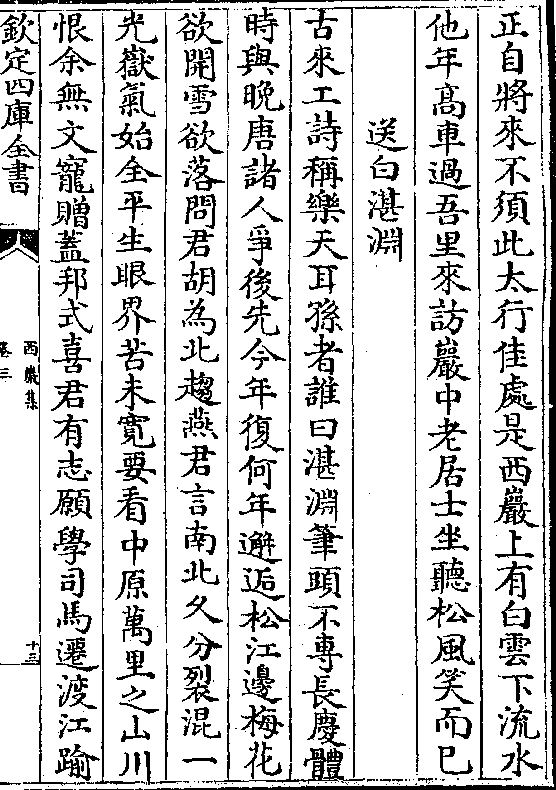 正自將來不須此太行佳處是西巖上有白雲下流水
他年髙車過吾里來訪巖中老居士坐聽松風笑而已
送白湛淵
古來工詩稱樂天耳孫者誰曰湛淵筆頭不專長慶體
時與晚唐諸人爭後先今年復何年邂逅松江邊梅花
欲開雪欲落問君胡為北趨燕君言南北久分裂混一
光嶽氣始全平生眼界苦未寛要看中原萬里之山川
恨余無文寵贈蓋邦式喜君有志願學司馬遷渡江踰
欽定四庫全書
西巖集
卷三
十三